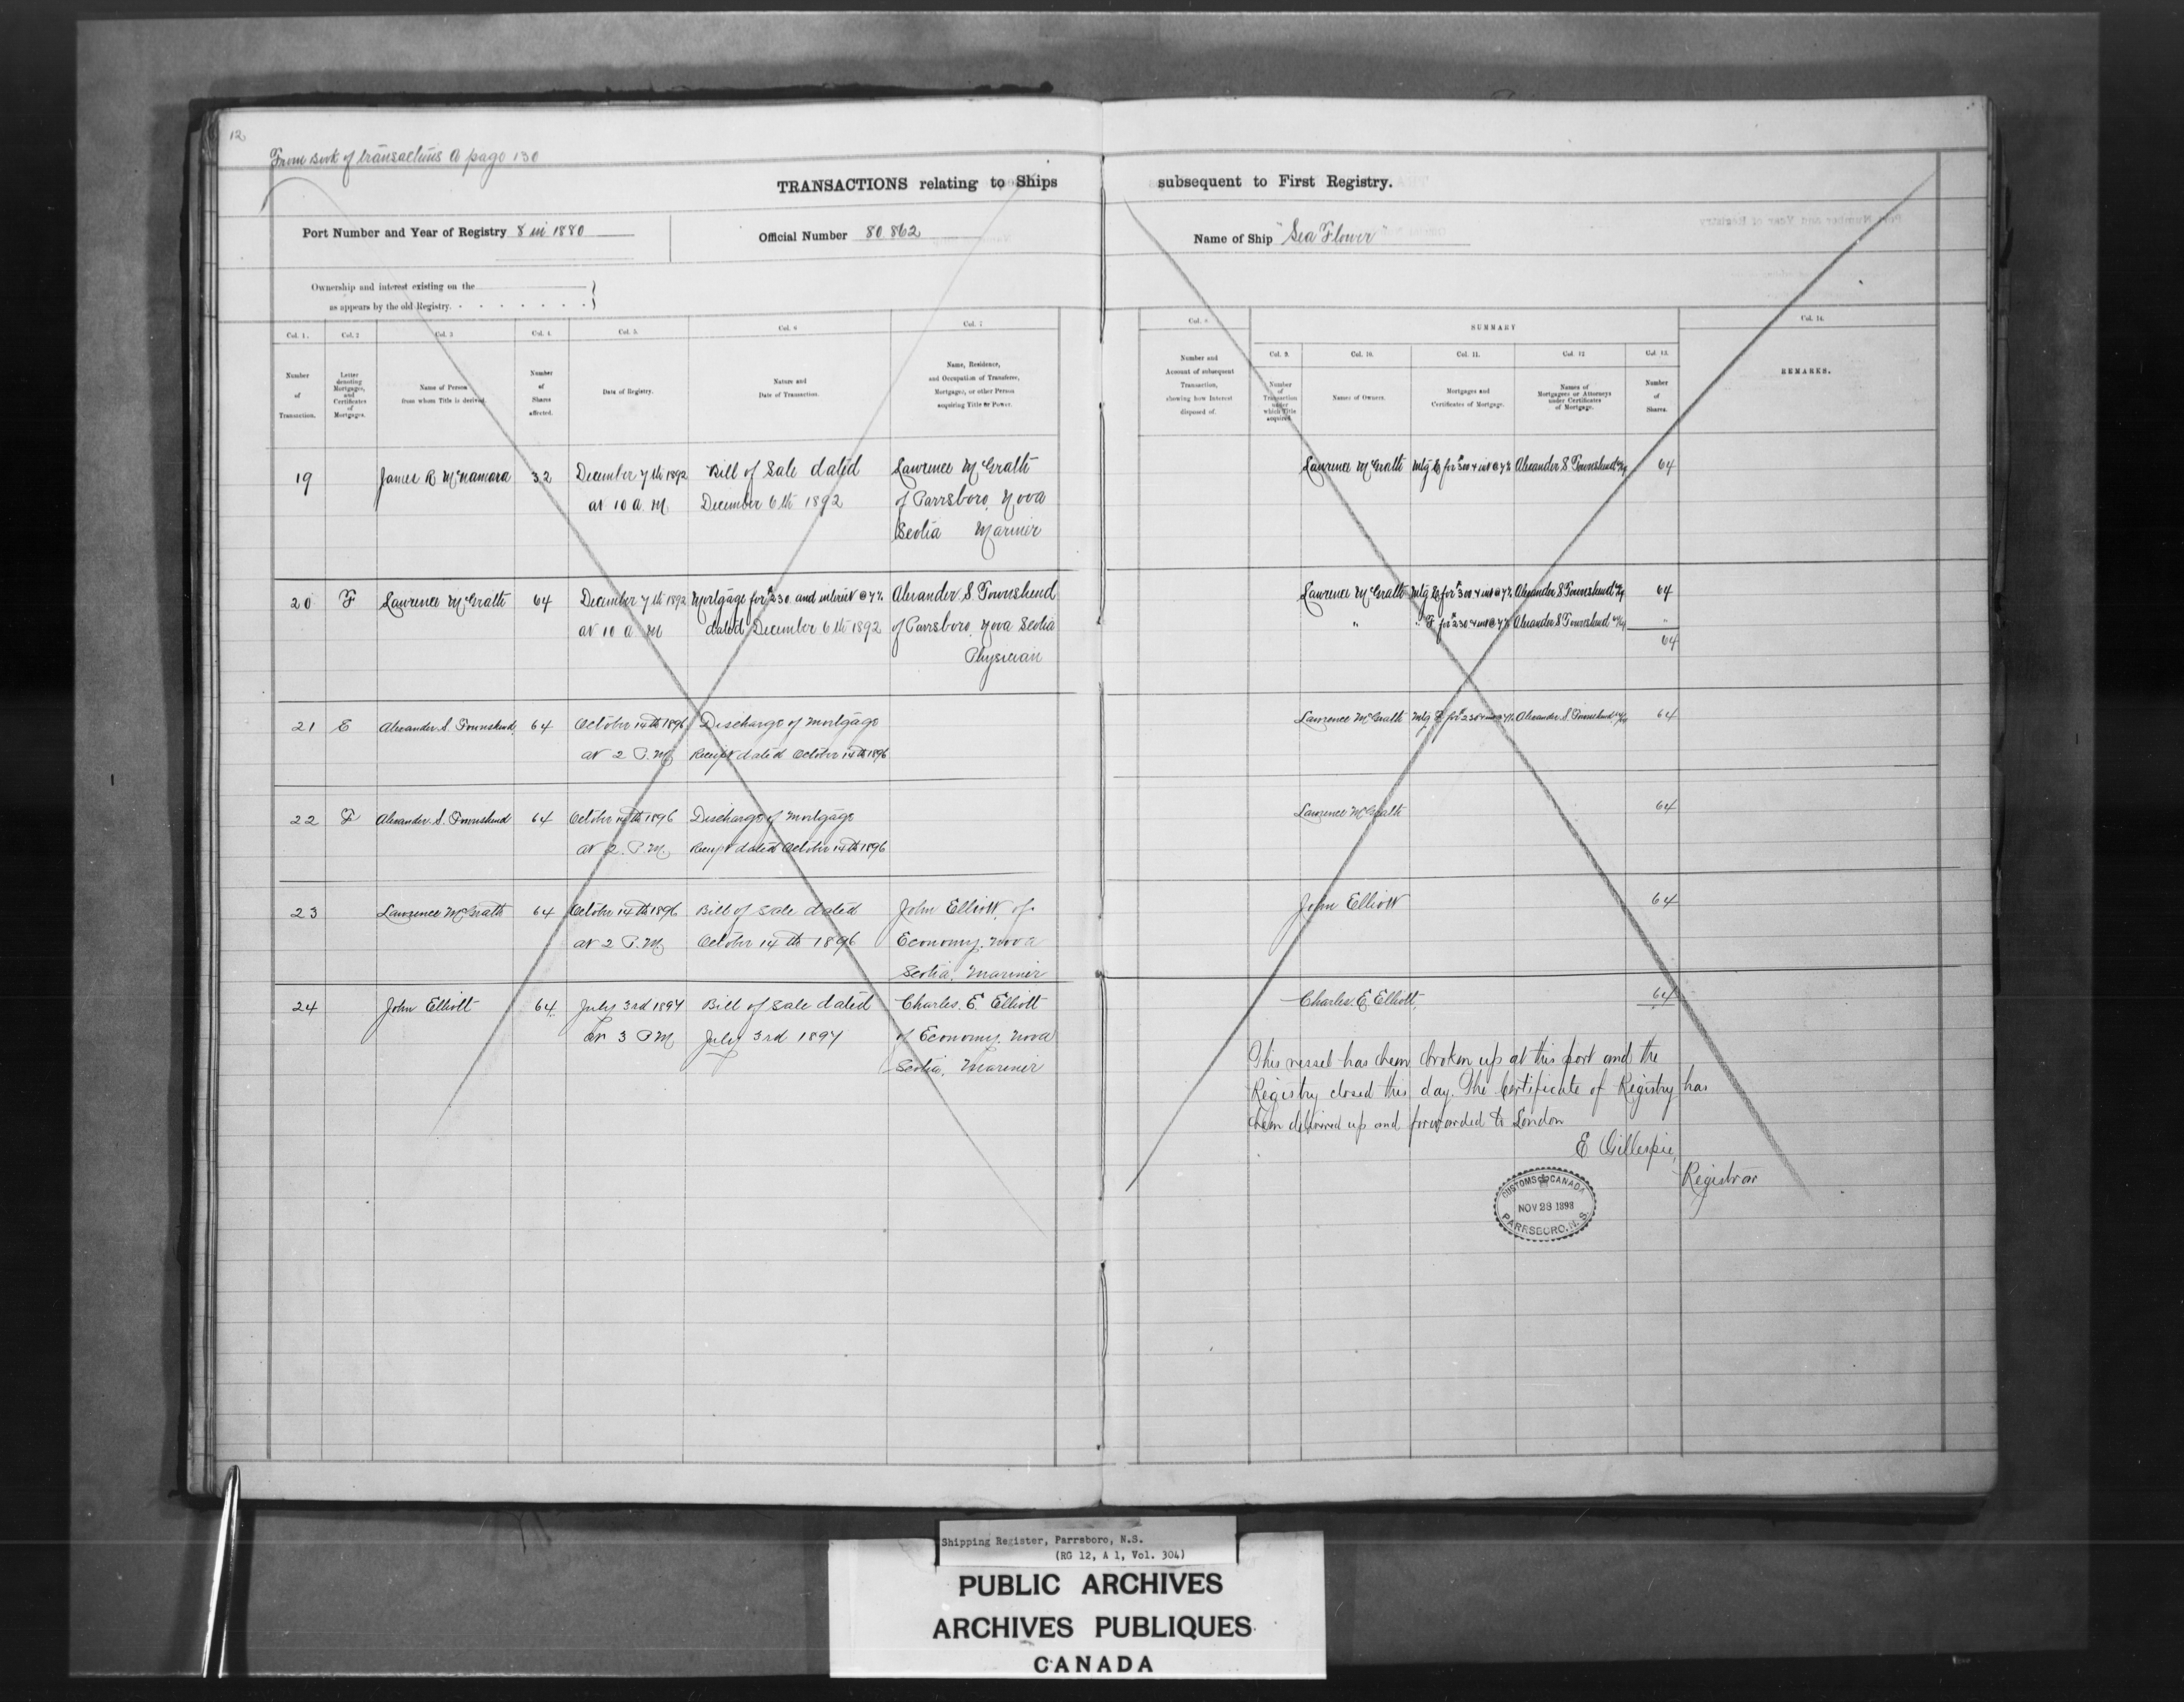 12
From Book of transactions A page 130
TRANSACTIONS relating to Ships subsequent to First Registry.
Port Number and Year of Registry 8 in 1880
Official Number 80 862
Name of Ship "Sea Flower"
Ownership and interest existing on the
as appears by the old Registry.
Col. 1. Col. 2 Col. 3 Col. 4. Col. 5. Col. 6 Col. 7
Number of Transaction.
Letter denoting Mortgages, and Certificates of Mortgages.
Name of Person from whom Title is derived.
Number of Shares affected.
Date of Registry.
Nature and Date of Transaction.
Name, Residence, and Occupation of Transferee, Mortgagee, or other Person acquiring Title or Power.
Col. 8
Number and Account of subsequent Transaction, showing how Interest disposed of.
SUMMARY
Col. 9. Col. 10. Col. 11. Col. 12 Col. 13.
Number of Transaction under which Title acquired
Names of Owners.
Mortgages and Certificates of Mortgage.
Names of Mortgagees or Attorneys under Certificates of Mortgage.
Number of Shares.
Col. 14.
REMARKS.
19 James R McNamara 32 December 7th 1892 Bill of Sale dated Lawrence McGrath
at 10 a. M December 6th 1892 of Parrsboro, Nova
Scotia Mariner
Lawrence McGrath Mtg E for $300 & int @ 7% Alexander S Townshend 64
20 F Lawrence McGrath 64 December 7th 1892 Mortgage for $230. and interest @ 7% Alexander S. Townshend
at 10 a M dated December 6th 1892 of Parrsboro, Nova Scotia
Physician
Lawrence McGrath Mtg E for $300 & int @ 7% Alexander S Townshend 64
" " F for $230 & int @ 7% Alexander S Townshend "
64
21 E Alexander S. Townshend 64 October 14th 1896 Discharge of Mortgage
at 2 P.M Receipt dated October 14th 1896
Lawrence McGrath Mtg F for $230 & int @ 7% Alexander S. Townshend 64
22 F Alexander S. Townshend 64 October 14th 1896 Discharge of Mortgage
at 2. P.M. Receipt dated October 14th 1896
Lawrence McGrath 64
23 Lawrence McGrath 64 October 14th 1896 Bill of Sale dated John Elliott, of
at 2 P.M October 14th 1896 Economy. Nova
Scotia. Mariner
John Elliott 64
24 John Elliott 64 July 3rd 1897 Bill of Sale dated Charles. E. Elliott
at 3 P M July 3rd 1897 of Economy. Nova
Scotia. Mariner
Charles. E. Elliott. 64
This vessel has been broken up at this port and the
Registry closed this day. The Certificate of Registry has
been delivered up and forwarded to London
E Gillespie,
Registrar
CUSTOMS CANADA
NOV 28 1898
PARRSBORO. N.S.
Shipping Register, Parrsboro, N.S.
(RG 12, A 1, Vol. 304)
PUBLIC ARCHIVES
ARCHIVES PUBLIQUES
CANADA